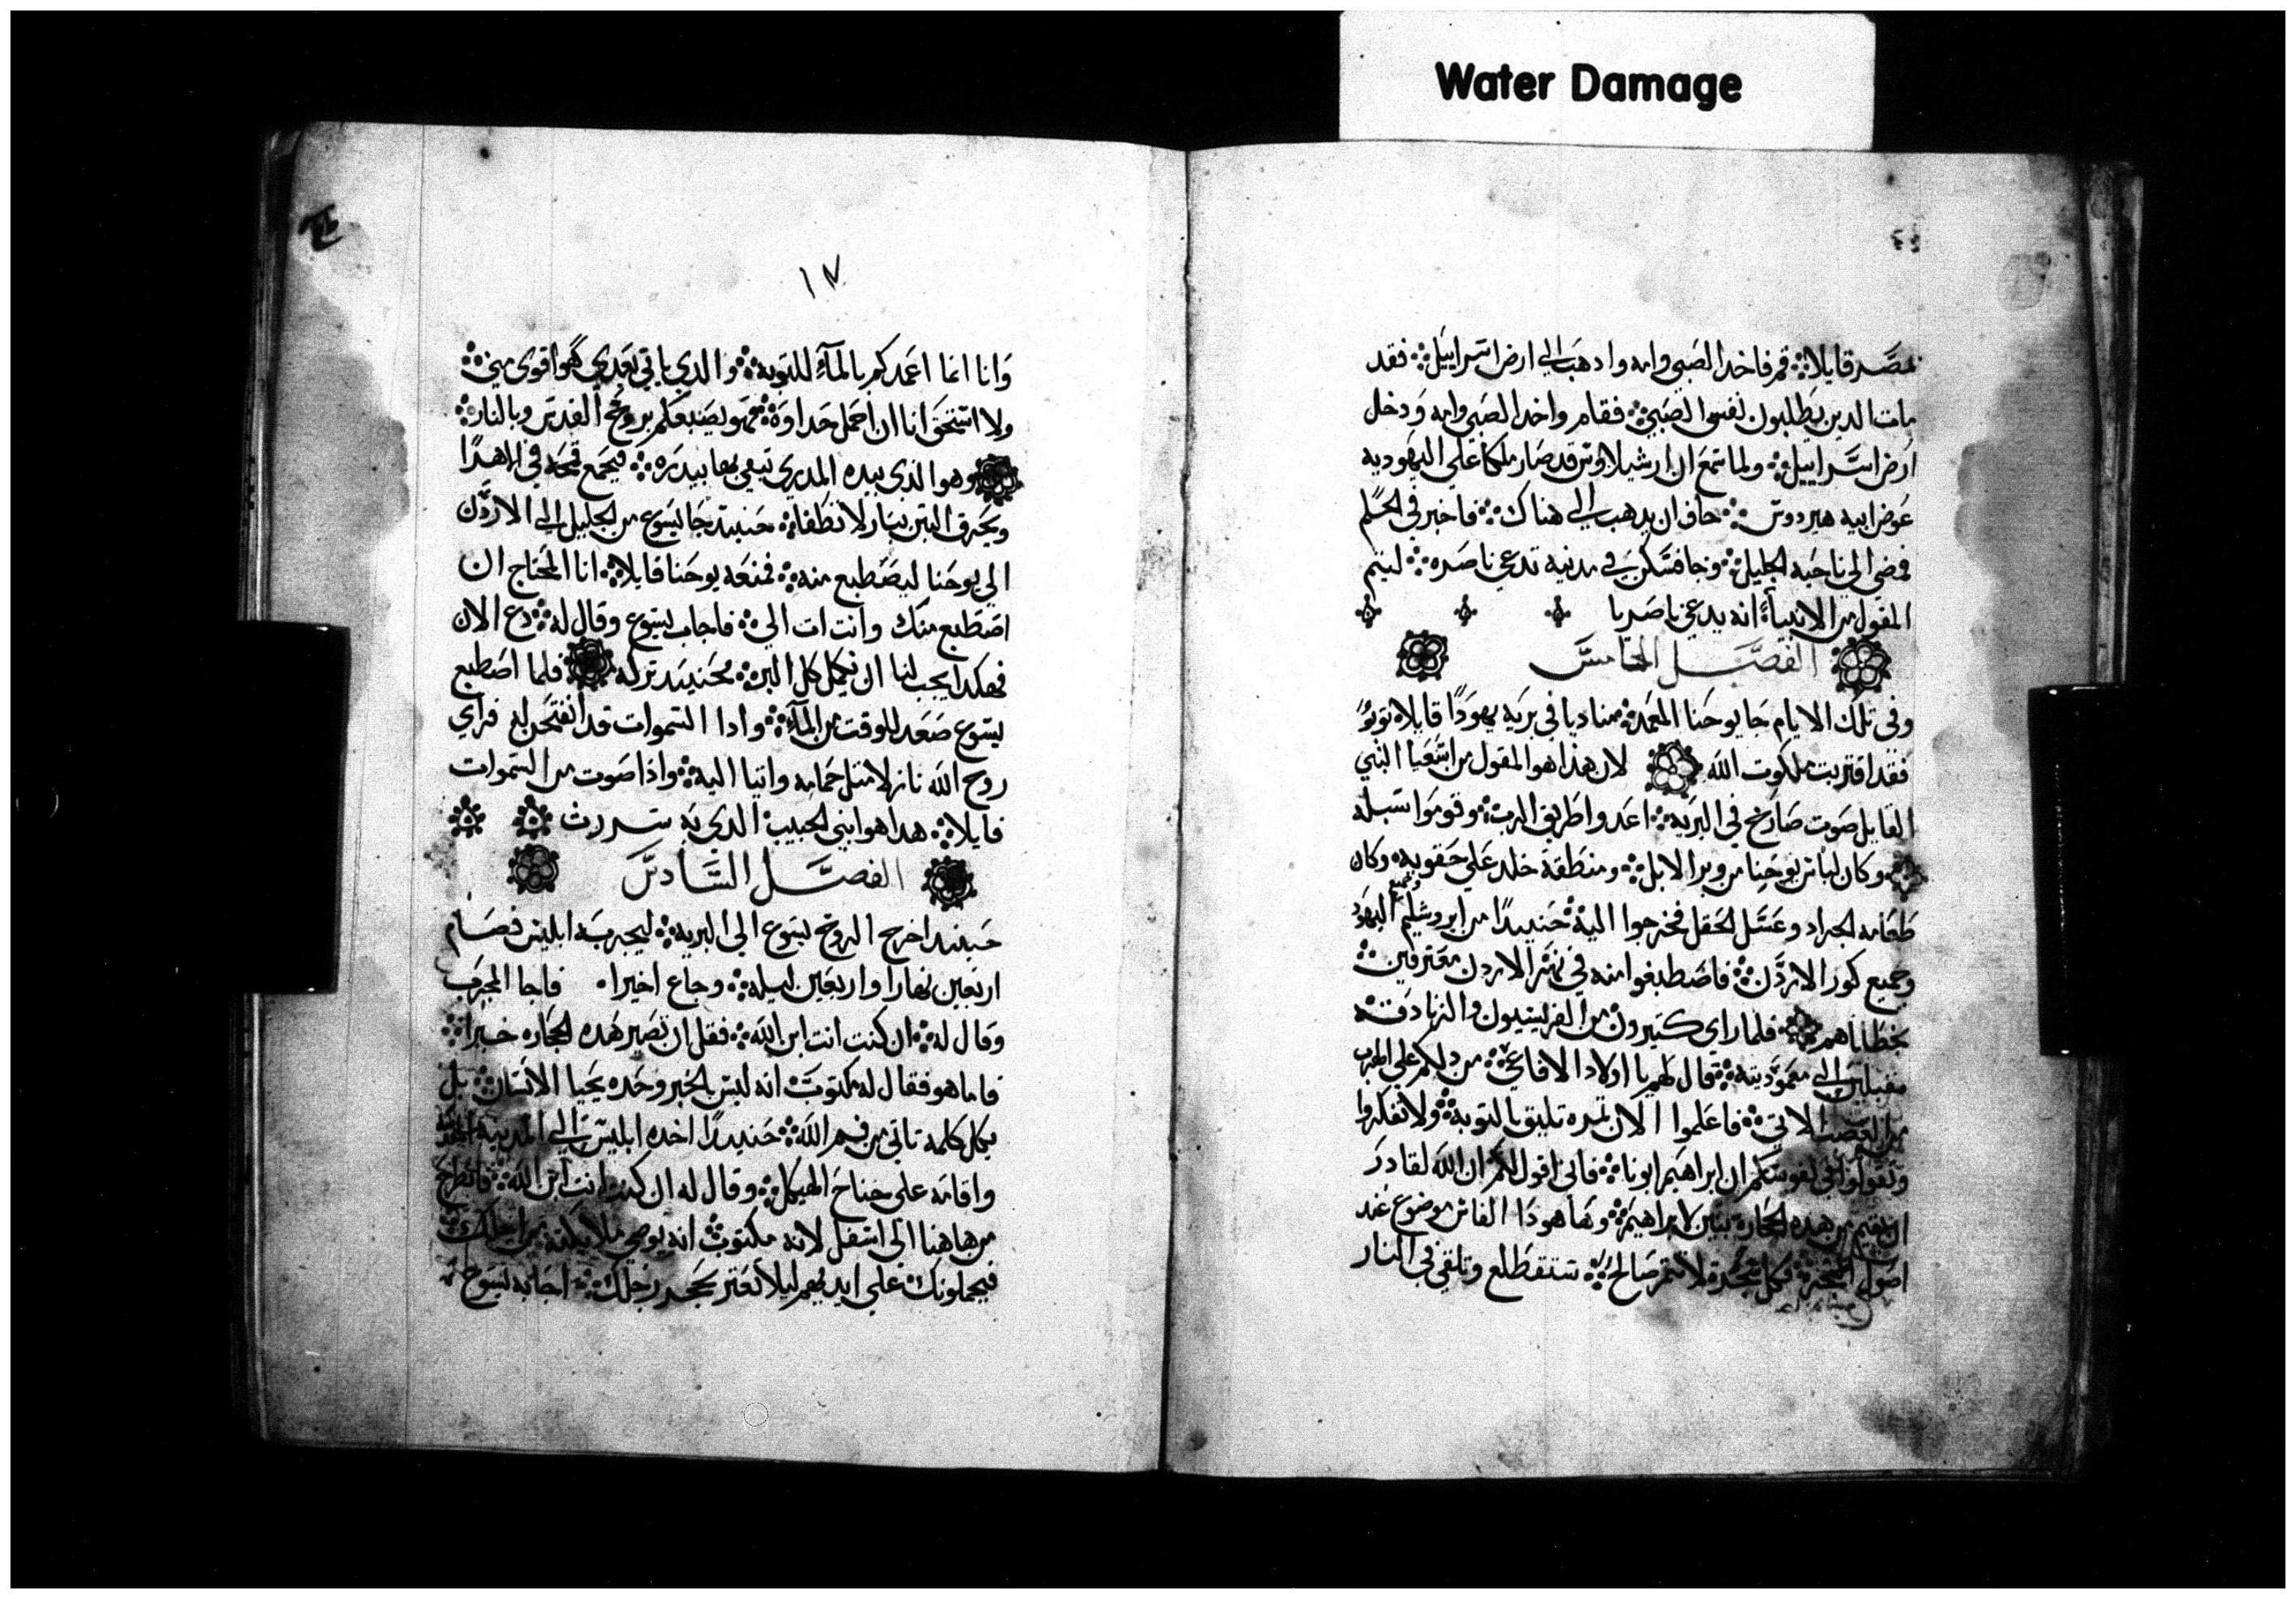 Water Damage
بمصر قايلا قم فاخد الصبي وامه وادهب الي ارض اسراييل فقد
مات الدين يطلبون نفس الصبي فقام واخد الصبي وامه ودخل
ارض اسراييل ولما سمع ان ارشيلاوس قد صار ملكا علي اليهوديه
عوض ابيه هيردوس خاف ان يدهب الي هناك فاخبر في الحلم
فمضي الي ناحيه الجليل وجا فسكن في مدينه تدعي ناصره ليتم
المقول من الانبياء انه يدعي ناصريا
الفصل الخامس
وفي تلك الايام جا يوحنا المعمد مناديا في بريه يهودا قايلا توبو
فقد اقتربت ملكوت الله لان هذا هو المقول من اشعيا النبي
القايل صوت صارخ في البريه اعدوا طريق الرب وقوموا سبله
وكان لباس يوحنا من وبر الابل ومنطقة جلد علي حقويه وكان
طعامه الجراد وعسل الحقل فخرجوا اليه حنيدا من ايروشليم وجميع اليهود
وجميع كور الاردن فاصطبغوا منه في نهر الاردن معترفين
بخطاياهم فلما راي كثيرون من الفريسيون والزنادقه
مقبلين الي معموديته قال لهم يا اولاد الافاعي من دلكم علي الهرب
من الغضب الاتي فاعملوا الان ثمره تليق بالتوبه ولا تفكروا
وتقولوا في نفوسكم ان ابراهيم ابونا فاني اقول لكم ان الله لقادر
ان يقيم من هده الحجارة بنين لابراهيم وها هودا الفاس موضوع عند
اصول الشجر فكل شجرة لا تثمر صالح ستقطلع وتلقي في النار
١٧
وانا انما اعمدكم بالماء للتوبه والدي ياتي بعدي هو اقوي مني
ولا استحق انا ان احمل حداوة فهو يصبغكم بروح القدس وبالنار
وهو الذي بيده المدري تبقي بها بيدره فيجمع قمحه في الاهدا
ويحرق التبن بنار لا تطفا حنيد جا يسوع من الجليل الي الاردن
الي يوحنا ليصطبع منه فمنعه يوحنا قايلا انا المحتاج ان
اصطبع منك وانت ات الي فاجاب يسوع وقال له دع الان
فهكدا يجب لنا ان نكمل كل البر حنيد تركه فلما اصطبع
يسوع صعد للوقت من الماء وادا السموات قد انفتحن له فراي
روح الله نازلا مثل حمامه واتيا اليه واذا صوت من السموات
قايلا هدا هو ابني الحبيب الدي به سررت
الفصل السادس
حينيد اخرج الروح يسوع الي البريه ليجربه ابليس فصام
اربعين نهارا واربعين ليله وجاع اخيرا فاجا المجرب
وقال له ان كنت انت ابن الله فقل ان تصير هده الحجاره خبزا
فاما هو فقال له مكتوب انه ليس بالخبز وحده يحيا الانسان بل
بكل كلمه تاتي من فم الله حنيدا اخده ابليس الي المدينه
واقامه علي جناح الهيكل وقال له ان كنت انت ابن الله فانطرح
من هاهنا الي اسفل لانه مكتوب انه يوصي ملايكته من اجلك
فيحملونك علي ايديهم ليلا تعتر بحجر رجلك اجابه يسوع